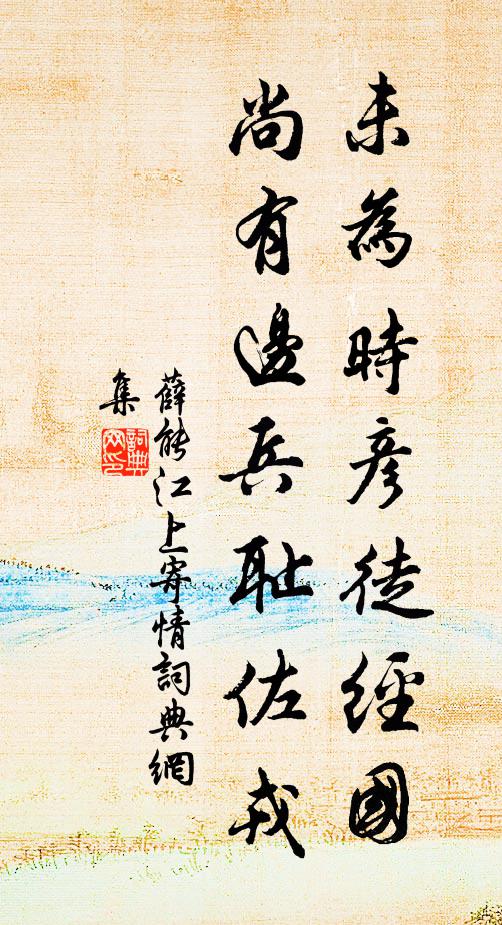 未為時彥徒經國
尚有邊兵恥佐戎
薛能江上寄情詞典網
集
詞典
网印